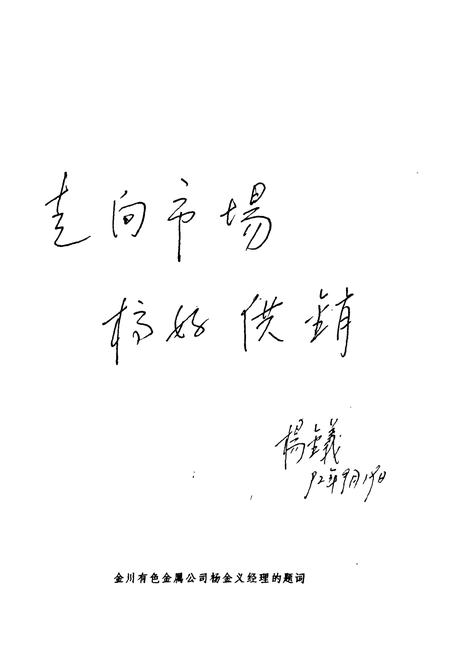 走向市場
搞好供銷
楊金義
92年9月19日
金川有色金属公司杨金义经理的题词